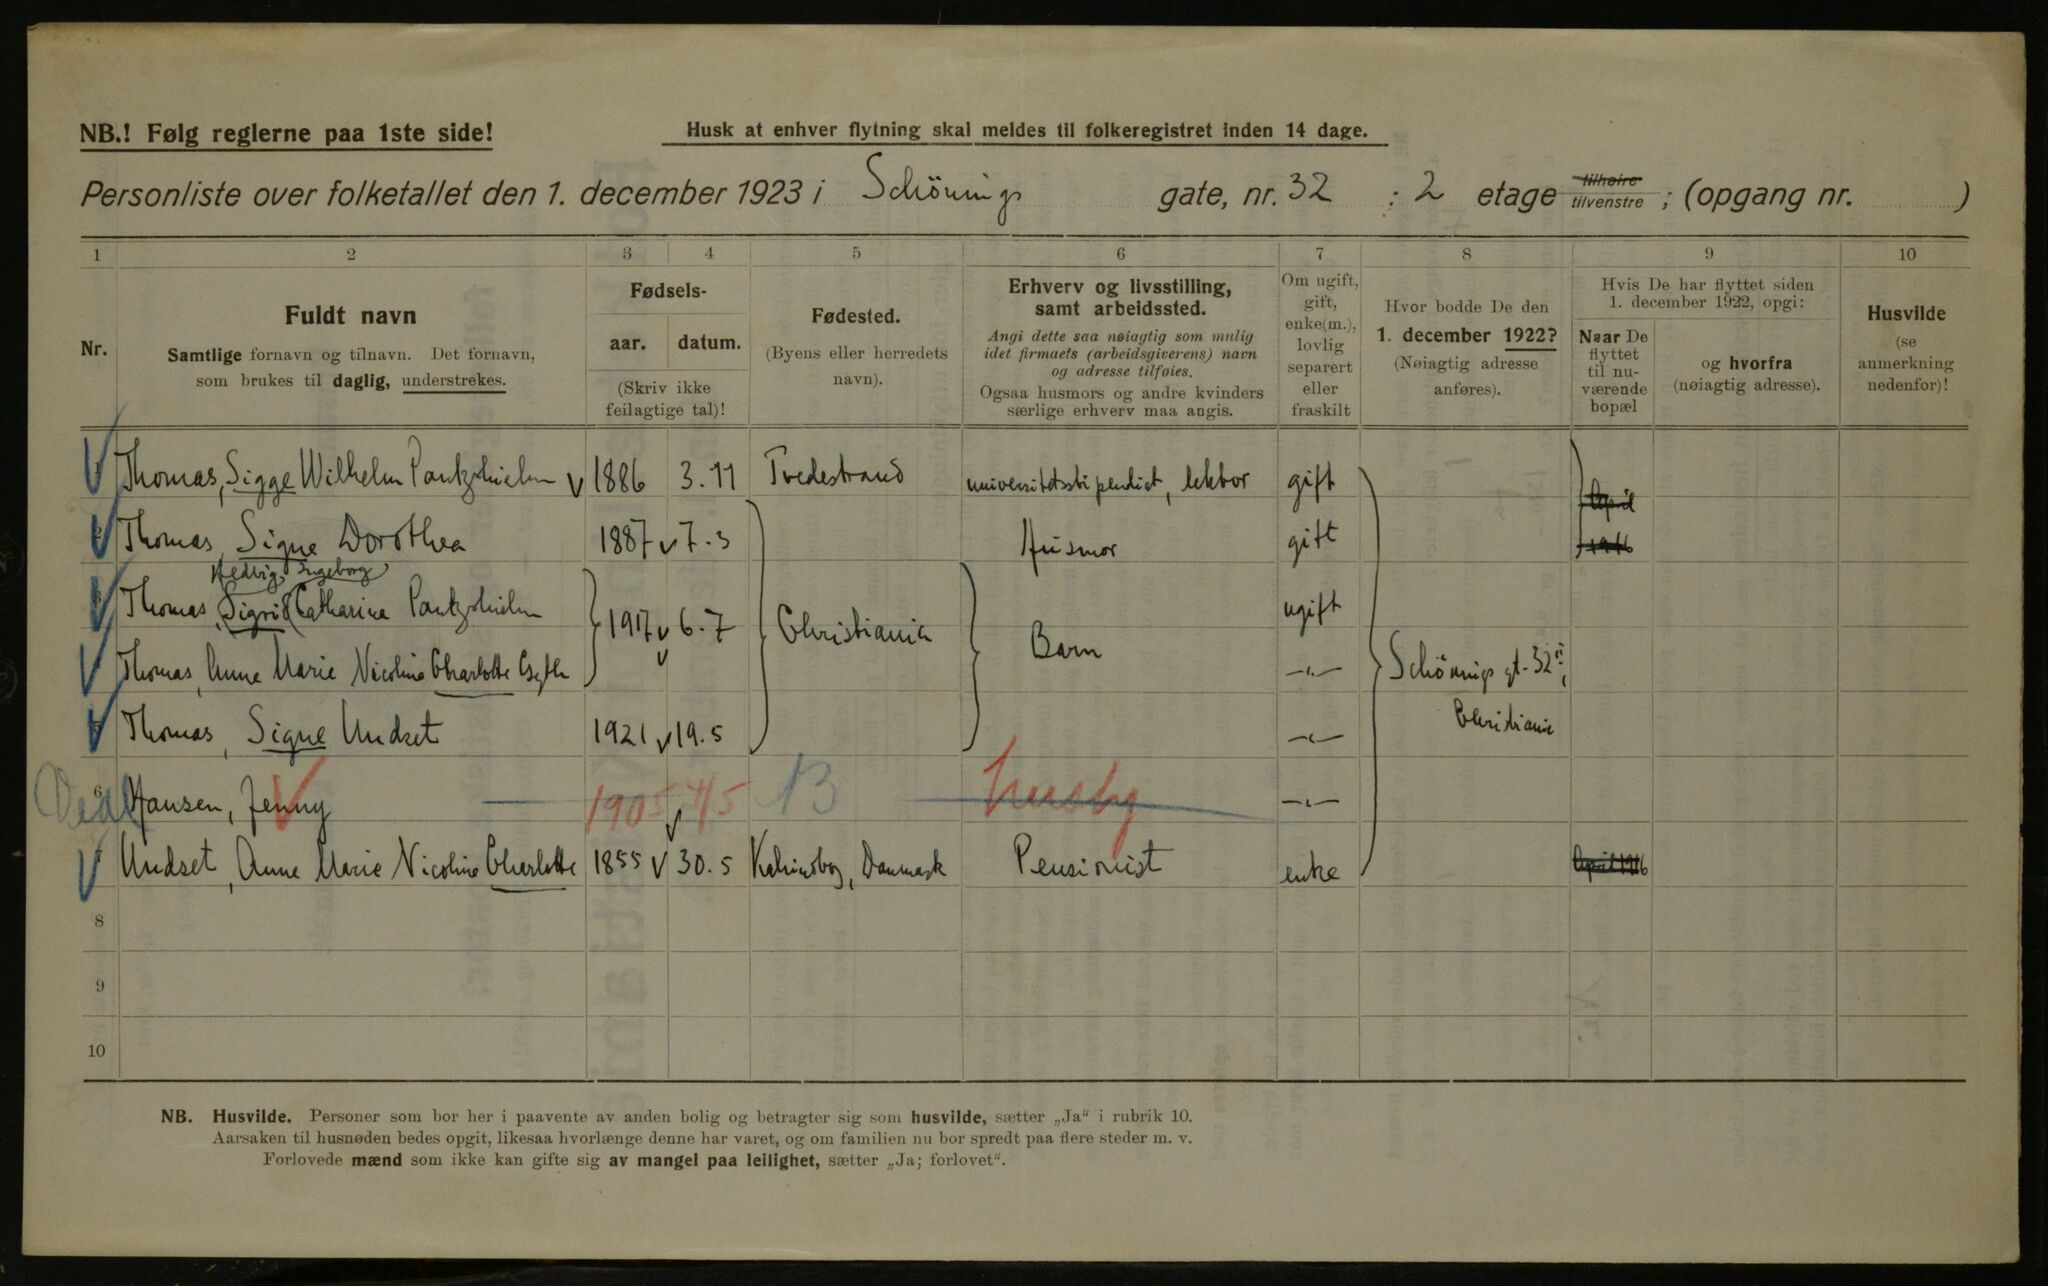 NB.! Følg reglerne paa 1ste side!
Husk at enhver flytning skal meldes til folkeregistret inden 14 dage.
Personliste over folketallet den 1. december 1923 i Schönings gate, nr. 32 : 2 etage tilhøire tilvenstre ; (opgang nr. )
1 2 3 4 5 6 7 8 9 10
Nr.
Fuldt navn
Samtlige fornavn og tilnavn. Det fornavn,
som brukes til daglig, understrekes.
Fødsels-
aar. datum.
(Skriv ikke
feilagtige tal)!
Fødested.
(Byens eller herredets
navn).
Erhverv og livsstilling,
samt arbeidssted.
Angi dette saa nøiagtig som mulig
idet firmaets (arbeidsgiverens) navn
og adresse tilføies.
Ogsaa husmors og andre kvinders
særlige erhverv maa angis.
Om ugift,
gift,
enke(m.),
lovlig
separert
eller
fraskilt
Hvor bodde De den
1. december 1922?
(Nøiagtig adresse
anføres).
Hvis De har flyttet siden
1. december 1922, opgi:
Naar De
flyttet
til nu-
værende
bopæl
og hvorfra
(nøiagtig adresse).
Husvilde
(se
anmerkning
nedenfor)!
1 Thomas, Sigge Wilhelm Pantzerhielm 1886 3.11 Tvedestrand universitetsstipendiat, lektor gift
April
2 Thomas, Signe Dorothea 1887 7.3 Husmor gift
1916
Hedvig Ingeborg
3 Thomas, (Sigrid) Catharina Pantzerhielm 1917 6.7 Christiania Barn ugift
4 Thomas, Anne Marie Nicoline Charlotte Gyth -"- Schönings gt. 32 II,
Christiania
5 Thomas, Signe Undset 1921 19.5 -"-
6 Hansen, Jenny 1905 4/5 B husby -"-
7 Undset, Anne Marie Nicoline Charlotte 1855 30.5 Kalundborg, Danmark Pensionist enke April 1916
8
9
10
NB. Husvilde. Personer som bor her i paavente av anden bolig og betragter sig som husvilde, sætter „Ja“ i rubrik 10.
Aarsaken til husnøden bedes opgit, likesaa hvorlænge denne har varet, og om familien nu bor spredt paa flere steder m. v.
Forlovede mænd som ikke kan gifte sig av mangel paa leilighet, sætter „Ja; forlovet“.